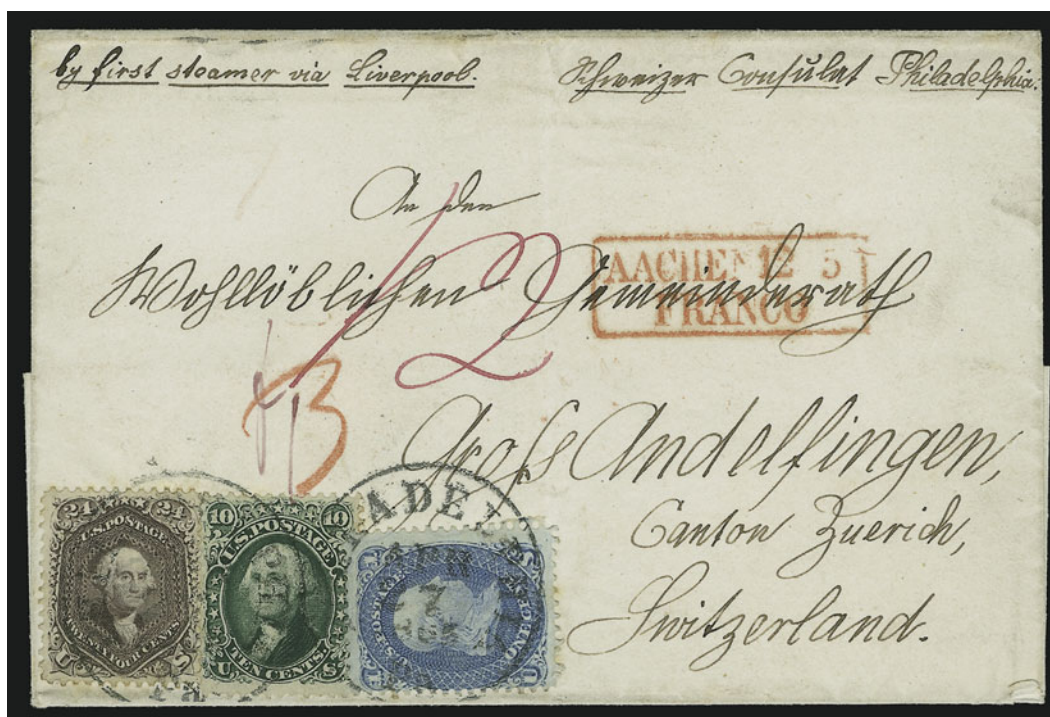 by first steamer via Liverpool.
Schweizer Consulat Philadelphia.
An den
Wohllöblichen Gemeinderath
AACHEN 12 5
FRANCO
12
3
Gross Andelfingen,
Canton Zuerich,
Switzerland.
24 24
U.S. POSTAGE
TWENTY FOUR CENTS.
U S
10 10
U.S. POSTAGE
TEN CENTS.
U S
ADEL
7
U.S. POSTAGE
ONE CENT